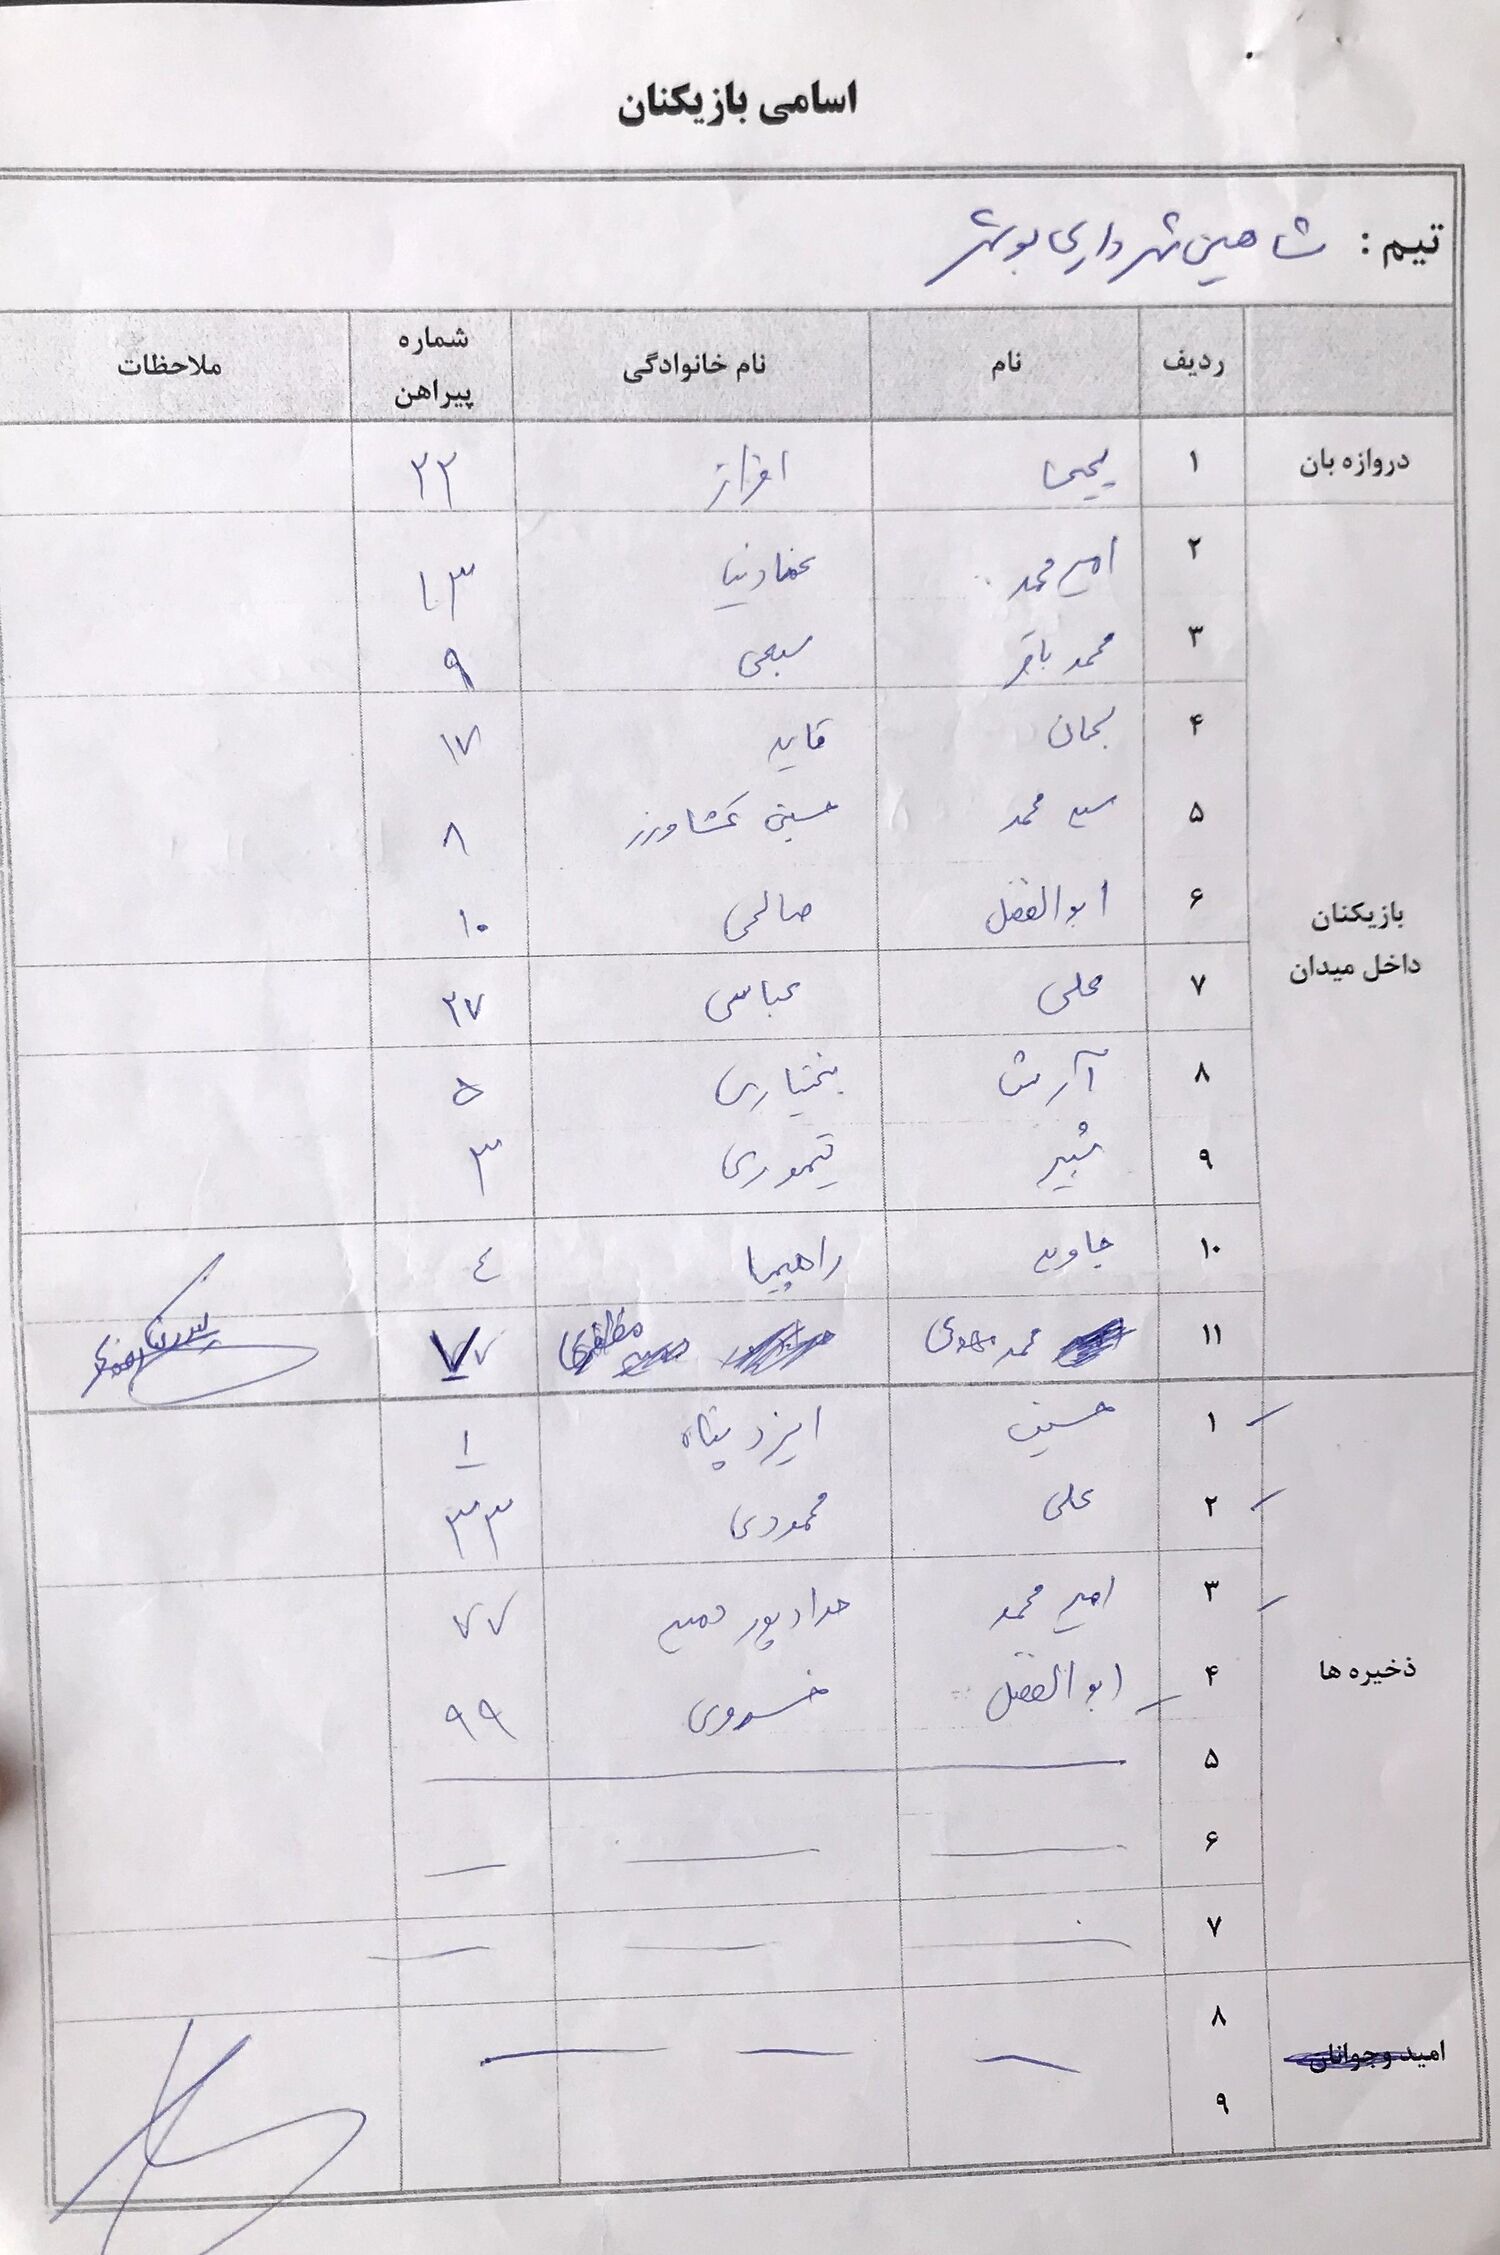 اسامی بازیکنان
تیم : شاهین شهرداری بوشهر
ردیف نام نام خانوادگی شماره پیراهن ملاحظات
دروازه بان ۱ یحیی افراز ۲۲
بازیکنان داخل میدان
۲ امیرمحمد عمادنیا ۱۳
۳ محمد باقر سبعی ۹
۴ قاید ۱۷
۵ سید محمد حسینی کشاورز ۸
۶ ابوالفضل صالحی ۱۰
۷ علی عباسی ۲۷
۸ آرش بختیاری ۵
۹ تیموری ۳
۱۰ جاوید راهپیما ٤
۱۱ محمد مهدی مظفری ۷
ذخیره ها
۱ حسین ایزدپناه ۱
۲ علی محمودی ۳۳
۳ امیر محمد حدادپور ۷۷
۴ ابوالفضل خسروی ۹۹
۵
۶
۷
امید وجوانان
۸
۹